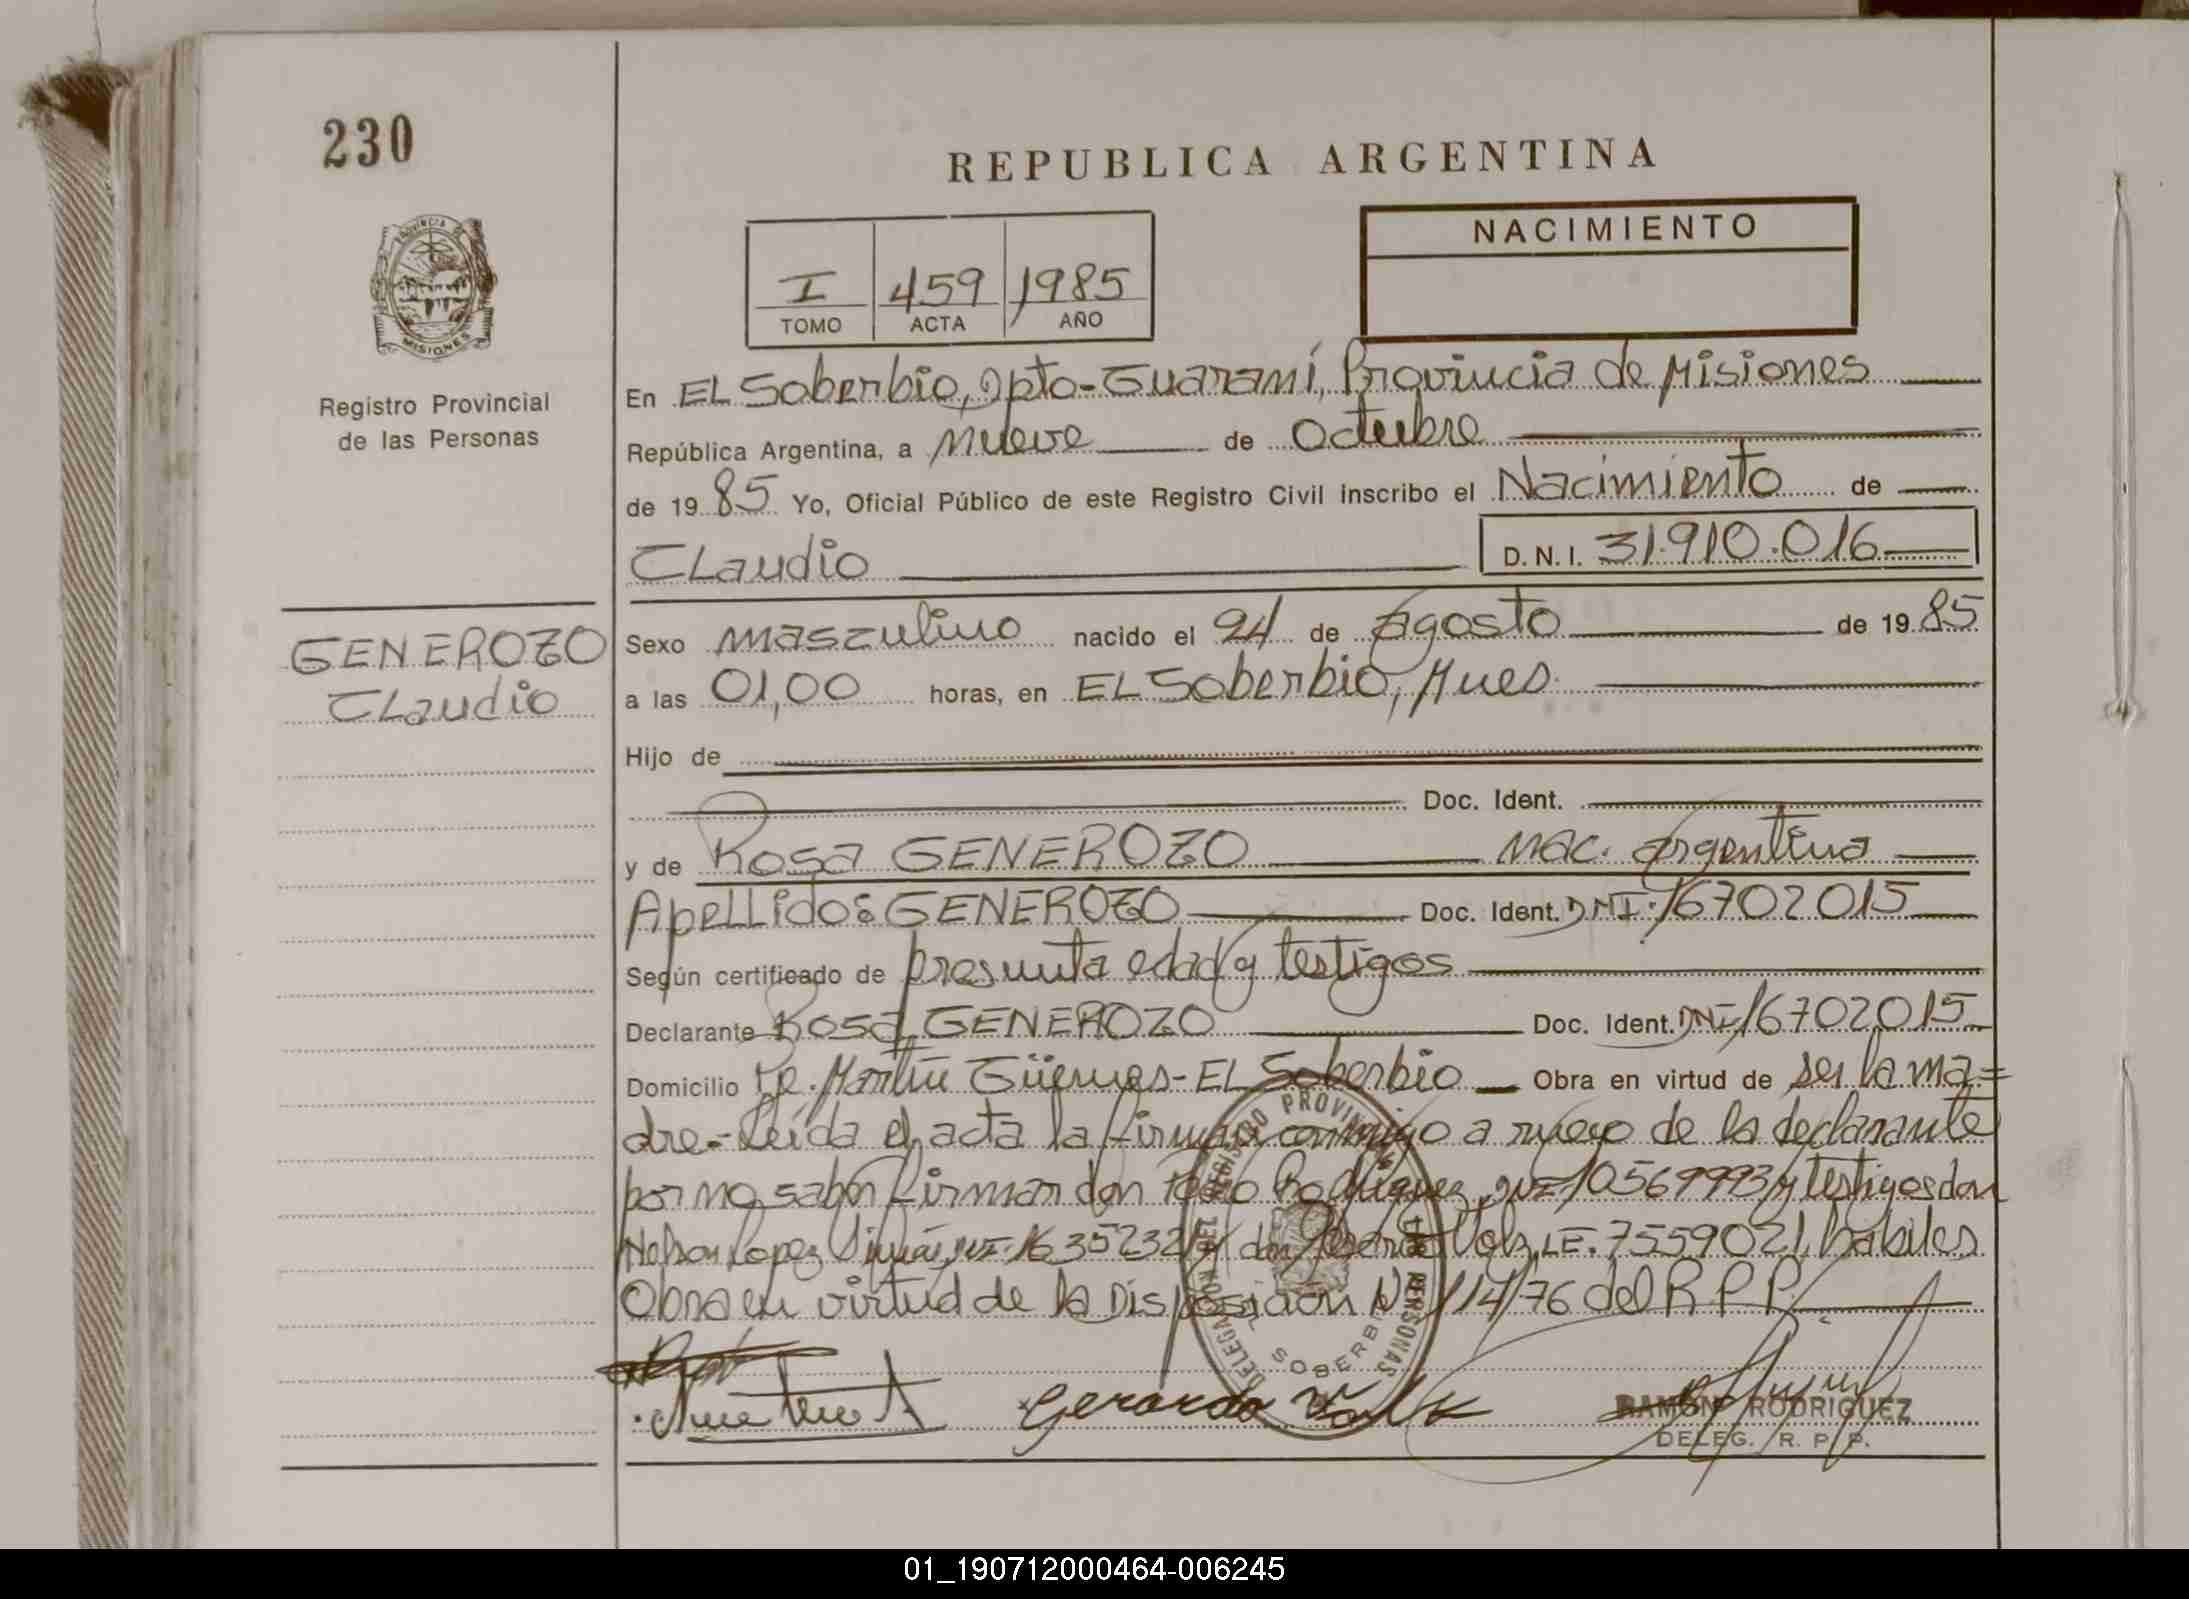 230
REPUBLICA ARGENTINA
PROVINCIA DE
MISIONES
Registro Provincial
de las Personas
I 459 1985
TOMO ACTA AÑO
NACIMIENTO
En EL Soberbio, Dpto-Guaraní, Provincia de Misiones
República Argentina, a nueve de octubre
de 1985 Yo, Oficial Público de este Registro Civil inscribo el Nacimiento de
CLaudio D.N.I. 31.910.016
GENEROZO
CLaudio
Sexo masculino nacido el 24 de agosto de 1985
a las 01,00 horas, en EL Soberbio, Mnes
Hijo de
Doc. Ident.
y de Rosa GENEROZO nac. argentina
Apellido: GENEROZO Doc. Ident. DNI. 16702015
Según certificado de presunta edad y testigos
Declarante Rosa GENEROZO Doc. Ident. DNI 16702015
Domicilio Pje. Martín Güemes-EL Soberbio Obra en virtud de ser la ma=
dre.- Leída el acta la firman conmigo a ruego de la declarante
por no saber firmar don Rodriguez, DNI 10569993 y testigos don
Nelson Lopez DNI. 16352321 y don Volz, LE. 7559021, habiles
Obra en virtud de la Disposición Nº 114/76 del R.P.P.
DELEGACION DEL REGISTRO PROVINCIAL DE LAS PERSONAS
EL SOBERBIO
Gerardo Volz
RAMON RODRIGUEZ
DELEG. R. P. P.
01_190712000464-006245